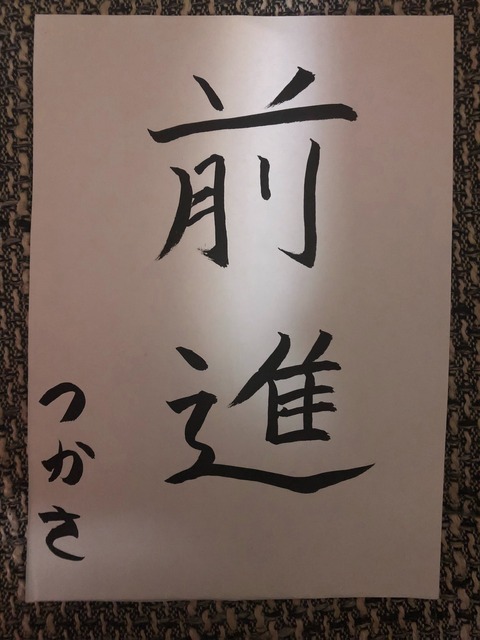 前進
つかさ